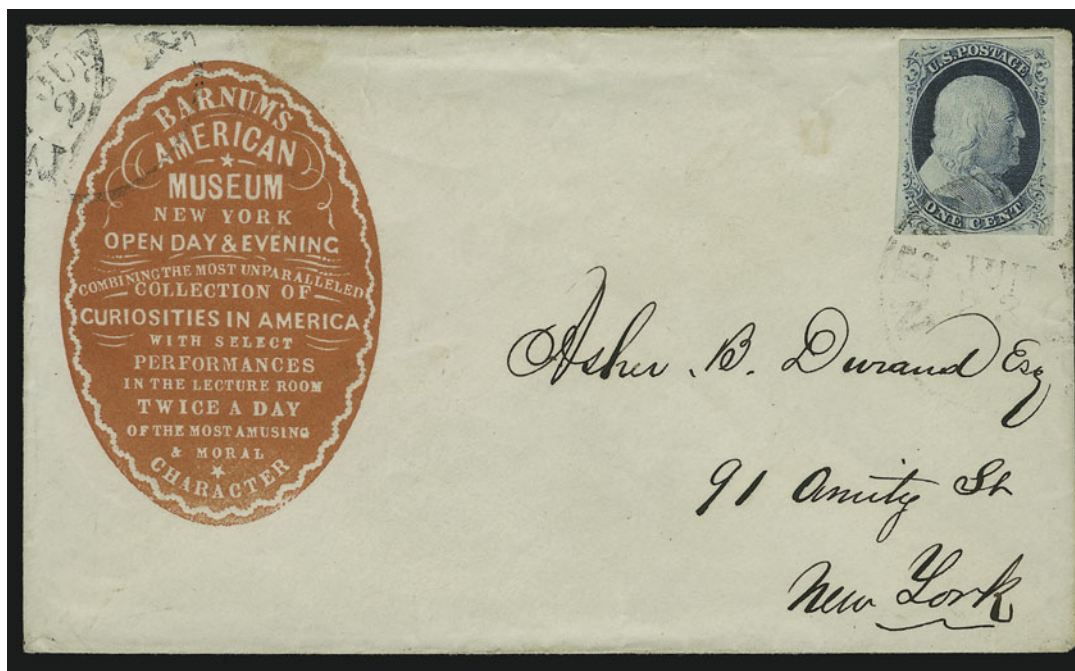 JUL
2
BARNUM'S
AMERICAN
MUSEUM
NEW YORK
OPEN DAY & EVENING
COMBINING THE MOST UNPARALLELED
COLLECTION OF
CURIOSITIES IN AMERICA
WITH SELECT
PERFORMANCES
IN THE LECTURE ROOM
TWICE A DAY
OF THE MOST AMUSING
& MORAL
CHARACTER
U.S. POSTAGE
ONE CENT
JUL
Asher . B. Durand Esq
91 Amity St
New York